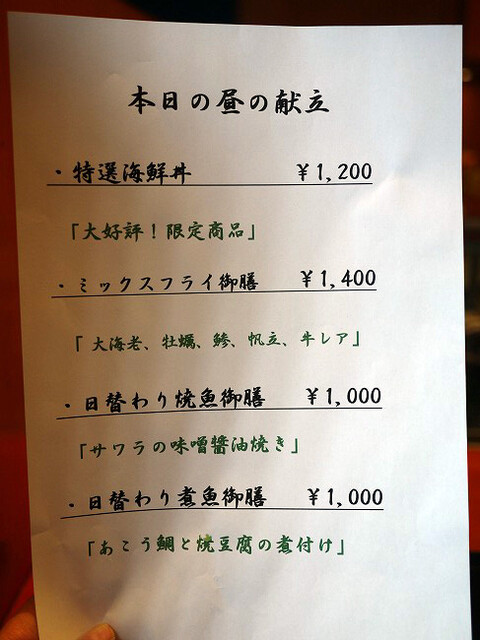 本日の昼の献立
・特選海鮮丼 ￥1,200
「大好評！限定商品」
・ミックスフライ御膳 ￥1,400
「大海老、牡蠣、鯵、帆立、牛レア」
・日替わり焼魚御膳 ￥1,000
「サワラの味噌醤油焼き」
・日替わり煮魚御膳 ￥1,000
「あこう鯛と焼豆腐の煮付け」